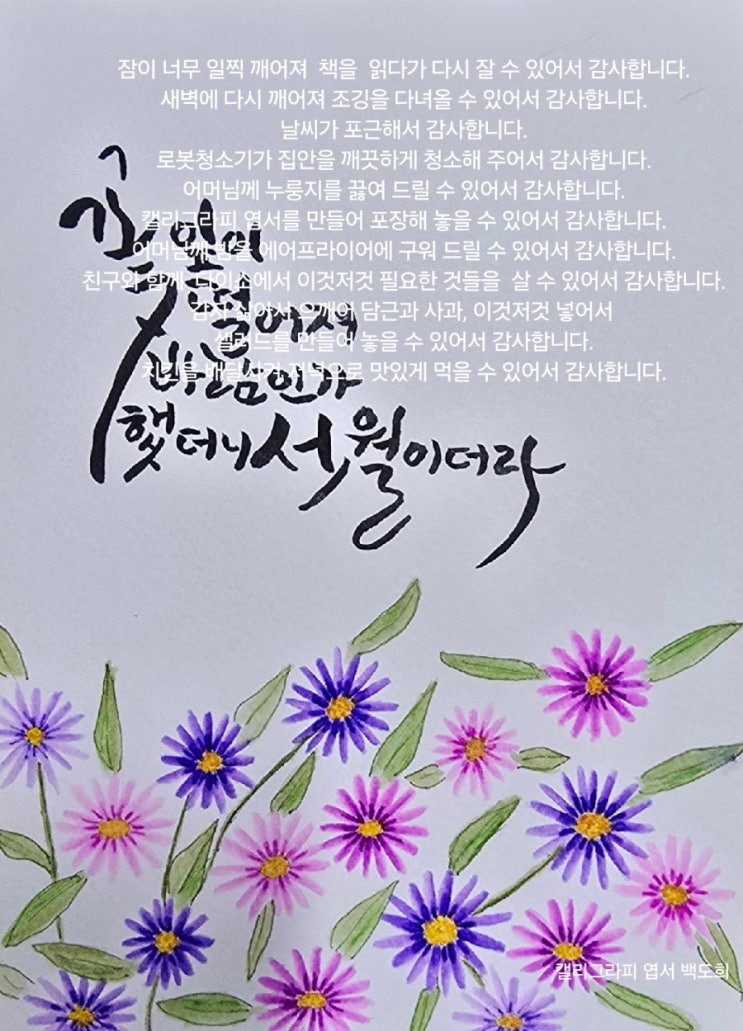 잠이 너무 일찍 깨어져 책을 읽다가 다시 잘 수 있어서 감사합니다.
새벽에 다시 깨어져 조깅을 다녀올 수 있어서 감사합니다.
날씨가 포근해서 감사합니다.
로봇청소기가 집안을 깨끗하게 청소해 주어서 감사합니다.
어머님께 누룽지를 끓여 드릴 수 있어서 감사합니다.
캘리그라피 엽서를 만들어 포장해 놓을 수 있어서 감사합니다.
어머님께 에어프라이어에 구워 드릴 수 있어서 감사합니다.
친구와 함께 다이소에서 이것저것 필요한 것들을 살 수 있어서 감사합니다.
감자 삶아서 으깨어 담근과 사과, 이것저것 넣어서
샐러드를 만들어 놓을 수 있어서 감사합니다.
치킨을 배달시켜 저녁으로 맛있게 먹을 수 있어서 감사합니다.
꽃잎이
떨어져
바람인가
했더니 세월이더라
캘리그라피 엽서 백도희